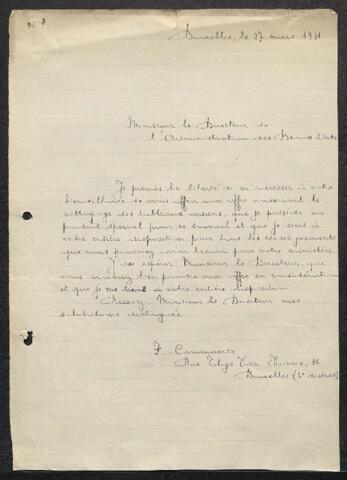 Bruxelles, le 27 mars 1931
Monsieur le Directeur de
l'Administration des Beaux Arts
Je prends la liberté de m'adresser à votre
bienveillance de vous offrir mon offre concernant le
nettoyage des tableaux anciens, que je possède un
produit spécial pour ce travail et que je suis à
votre entière disposition pour tous les renseignements
que vous pourriez avoir besoin pour votre ministère.
J'ose espérer, Monsieur le Directeur, que
vous voudrez bien prendre mon offre en considération
et que je me tiens à votre entière disposition.
Recevez, Monsieur le Directeur mes
salutations distinguées.
F. Cammaerts
Rue Thys Van
Bruxelles (2e district)